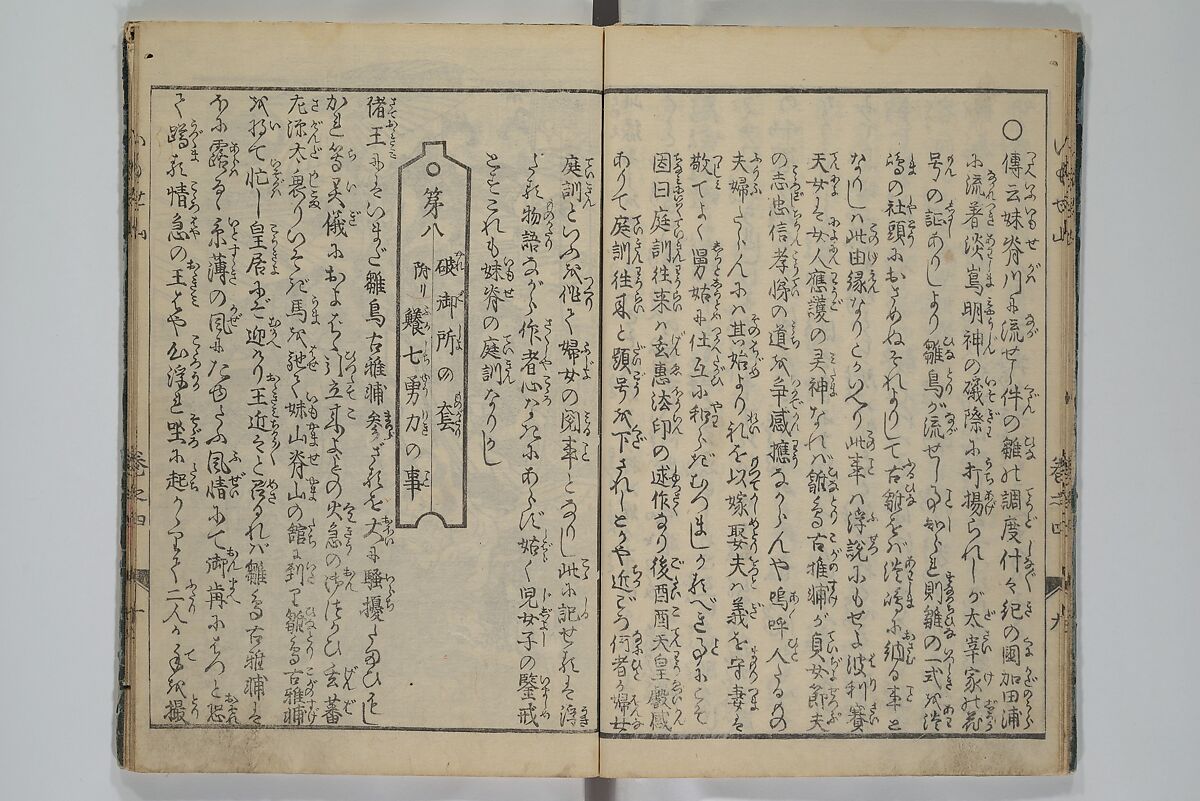 ○傳云妹脊川に流せし件の雛の調度什々紀の國加田浦
に流着淡嶌明神の礒際に打揚られしが太宰家の花
号の証ありしより雛鳥が流せし事知られ則雛の一式を淡
嶋の社頭におさめぬそれよりして古雛をば淡嶋に納る事と
なりしハ此由縁なりとかいへり此事ハ浮説にもせよ波利賽
天女は女人應護の灵神なれバ雛鳥古推脯が貞女節夫
の志忠信孝悌の道を争感應なからんや嗚呼人たるの
夫婦たらんにハ其始より礼を以嫁娶夫ハ義を守妻は
敬てよく舅姑に仕互に和らぎむつましかるべき事にこそ
因曰庭訓往来ハ玄惠法印の述作なり後酉酉天皇叡感
ありて庭訓往来と題号を下されしとかや近ごろ何者か婦女
庭訓といふを作て婦女の閲事となりし此に記せるは浮
たる物語ながら作者心ハこれにあらず姑く児女子の鑒戒
とすこれも妹脊の庭訓なりかし
○第八 礒御所の套
附リ 鱶七勇力の事
諸王にはいまだ雛鳥古雅脯参ざるを大に騒擾たまひもし
かれ等異儀におよはゝ引立来よとの火急の御使ひ玄蕃
左源太奥りいそぎ馬を馳て妹山脊山の館に到り雛鳥古雅脯
を将て忙し皇居にぞ迎り王近くと召るれバ雛鳥古雅脯は
ほに露なる糸薄の風にたゆたふ風情にて御前にはつと恐
て蹲る情急の王はや心浮れ坐に起かくて二人が手を撮
卷之四 九
卷之四 十